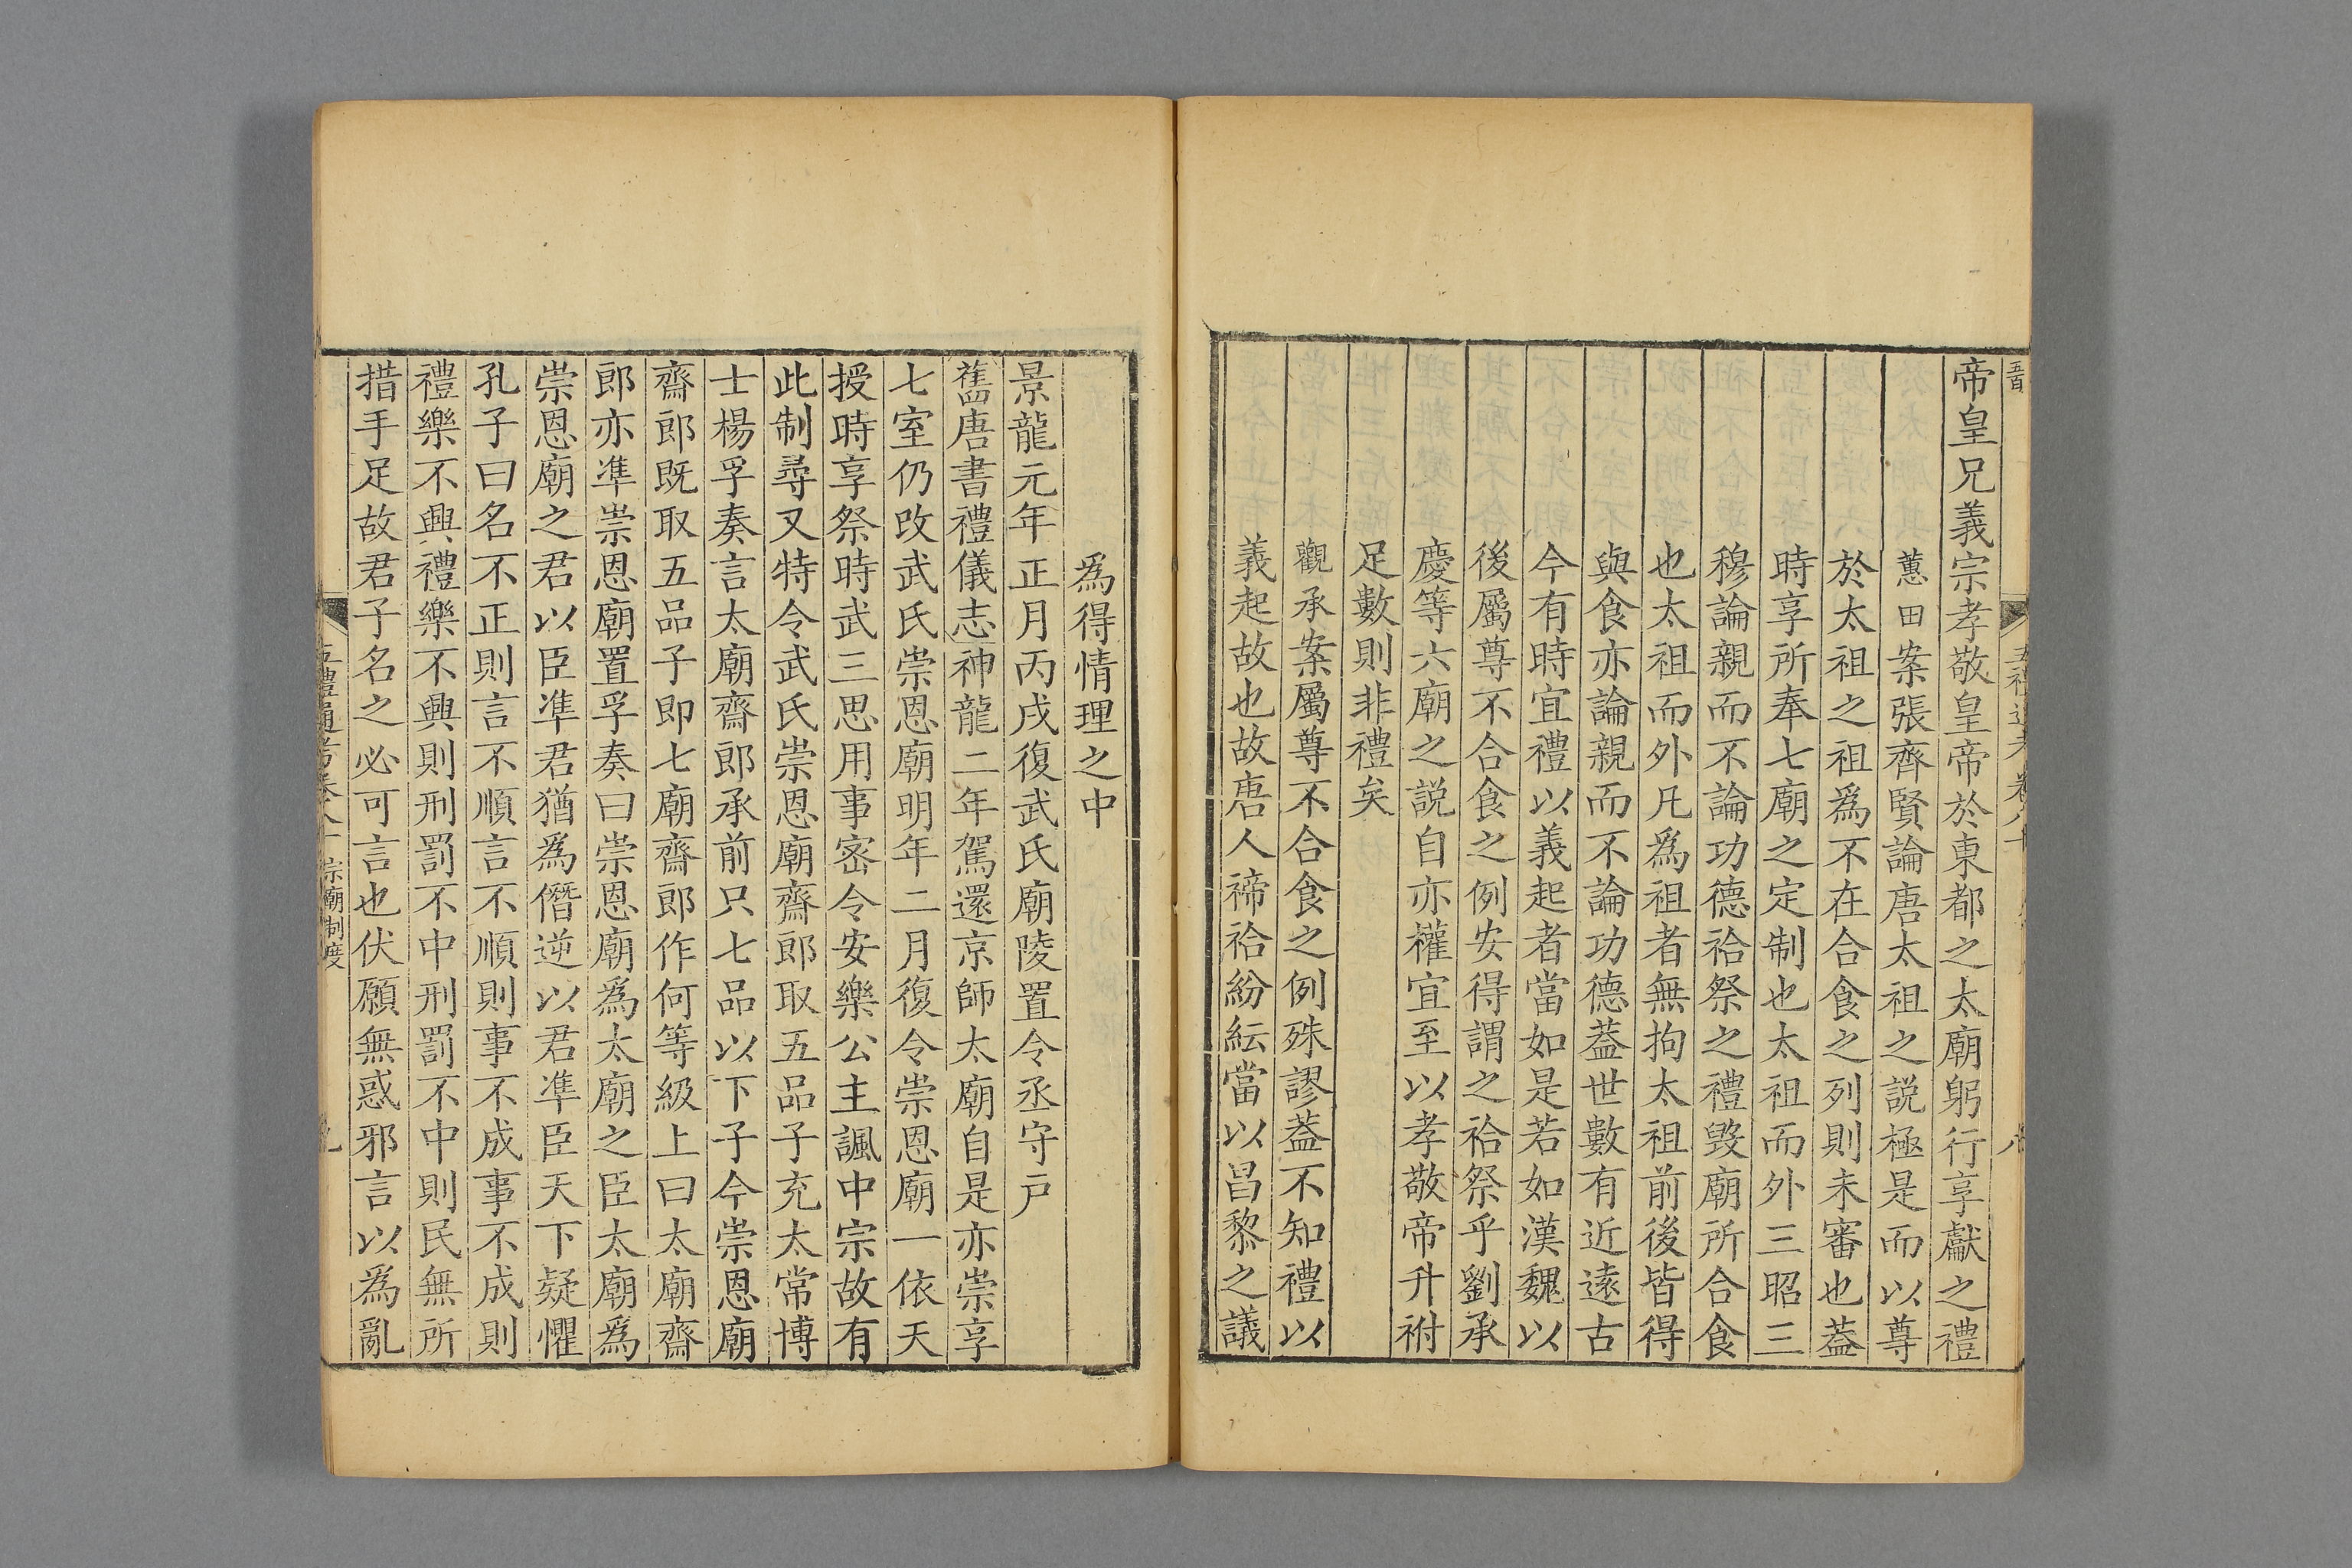 帝皇兄義宗孝敬皇帝於東都之太廟躬行享獻之禮
蕙田案張齊賢論唐太祖之説極是而以尊
於太祖之祖為不在合食之列則未審也葢
時享所奉七廟之定制也太祖而外三昭三
穆論親而不論功德祫祭之禮毁廟所合食
也太祖而外凡為祖者無拘太祖前後皆得
與食亦論親而不論功德葢世數有近逺古
今有時宜禮以義起者當如是若如漢魏以
後屬尊不合食之例安得謂之祫祭乎劉承
慶等六廟之説自亦權宜至以孝敬帝升祔
足數則非禮矣
觀承案屬尊不合食之例殊謬葢不知禮以
義起故也故唐人禘祫紛紜當以昌黎之議
為得情理之中
景龍元年正月丙戌復武氏廟陵置令丞守戸
舊唐書禮儀志神龍二年駕還京師太廟自是亦崇享
七室仍改武氏崇恩廟明年二月復令崇恩廟一依天
授時享祭時武三思用事宻令安樂公主諷中宗故有
此制尋又特令武氏崇恩廟齋郎取五品子充太常博
士楊孚奏言太廟齋郎承前只七品以下子今崇恩廟
齋郎既取五品子即七廟齋郎作何等級上曰太廟齋
郎亦準崇恩廟置孚奏曰崇恩廟為太廟之臣太廟為
崇恩廟之君以臣準君猶為僭逆以君準臣天下疑懼
孔子曰名不正則言不順言不順則事不成事不成則
禮樂不興禮樂不興則刑罰不中刑罰不中則民無所
措手足故君子名之必可言也伏願無惑邪言以為亂
宗廟制度